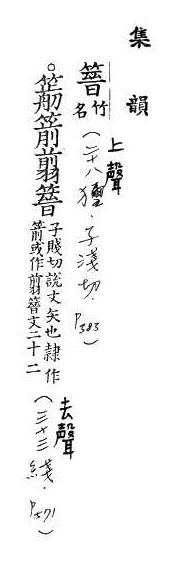 集韻
竹名(二十八獮.子淺切.P383)
上聲
箭翦
子賤切說文矢也隸作
箭或作翦文二十二
(三十三綫.P571)
去聲